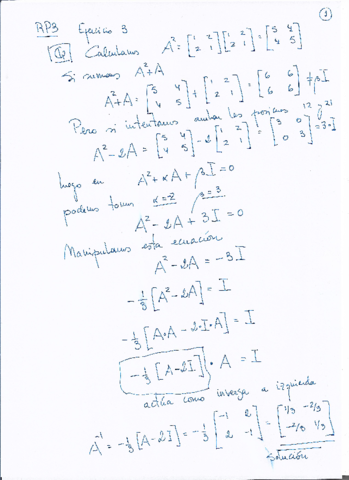 ①
RP3 Ejercicio 3
1º Calculamos A² = [1 2; 2 1] [1 2; 2 1] = [5 4; 4 5]
Si sumas A²+A
A²+A = [5 4; 4 5] + [1 2; 2 1] = [6 6; 6 6] ≠ βI
Pero si intentamos anular las posiciones 12 y 21
A²-2A = [5 4; 4 5] - 2[1 2; 2 1] = [3 0; 0 3] = 3·I
luego en A²+αA+βI=0
podemos tomar α=-2 β=3
A²-2A+3I=0
Manipulamos esta ecuación
A²-2A=-3I
-1/3[A²-2A]=I
-1/3[A·A-2·I·A]=I
-1/3[A-2I]·A=I
actúa como inversa a izquierda
A⁻¹=-1/3[A-2I]=-1/3[-1 2; 2 -1]=[1/3 -2/3; -2/3 1/3]
solución